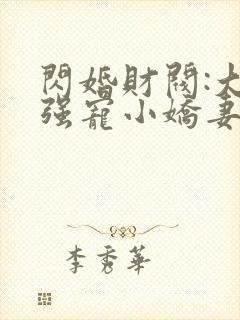 閃婚財閥:大
强寵小嬌妻
李秀華